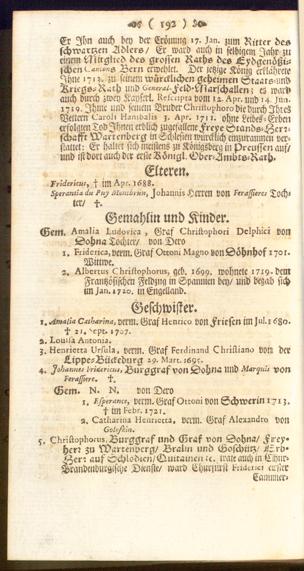 ( 192 )
Er Ihn auch bey der Crönung 17. Jan. zum Ritter des
schwartzen Adlers/ Er ward auch in selbigem Jahr zu
einem Mitglied des grossen Raths des Eydgenößi-
schen Cantons Bern erwehlet. Der jetzige König erklährete
Ihne 1713. zu seinem würcklichen geheimen Staats- und
Kriegs-Rath und General-Feld-Marschallen; es ward
auch durch zwey Kayserl. Rescripta vom 12. Apr. und 14. Jun.
1719. Ihme und seinem Bruder Christophoro die durch Ihres
Vettern Caroli Hannibalis 3. Apr. 1711. ohne Leibes-Erben
erfolgten Tod Ihnen erblich zugefallene Freye Stands-Herr-
schafft Wartenberg in Schlesien würcklich einzuraumen ver-
stattet: Er haltet sich meistens zu Königsberg in Preussen auf/
und ist dort auch der erste Königl. Ober-Ambts-Rath.
Elteren.
Fridericus, † im Apr. 1688.
Sperantia du Puy Montbrün, Johannis Herren von Ferassieres Toch-
ter/ †.
Gemahlin und Kinder.
Gem. Amalia Ludovica, Graf Christophori Delphici von
Dohna Tochter/ von Dero
1. Friderica, verm. Graf Ottoni Magno von Dönhof 1701.
Wittwe.
2. Albertus Christophorus, geb. 1699. wohnete 1719. dem
Frantzösischen Feldzug in Spannien bey/ und begab sich
im Jan. 1720. in Engelland.
Geschwister.
1. Amalia Catharina, verm. Graf Henrico von Friesen im Jul. 1680.
† 21. Sept. 1707.
2. Louisa Antonia.
3. Henrietta Ursula, verm. Graf Ferdinand Christiano von der
Lippe-Bückeburg 29. Mart. 1695.
4. Johannes Fridericus, Burggraf von Dohna und Marquis von
Ferassiere. †.
Gem. N. N. von Dero
1. Esperance, verm. Graf Ottoni von Schwerin 1713.
† im Febr. 1721.
2. Catharina Henrietta, verm. Graf Alexandro von
Goloskin.
5. Christophorus, Burggraf und Graf von Dohna/ Frey-
herr zu Wartenberg/ Bralin und Goschütz/ Erb-
Herr auf Schlodien/ Quitainen &c. trate auch in Chur-
Brandenburgische Dienste/ ward Churfürst Friderici erster
Cammer-